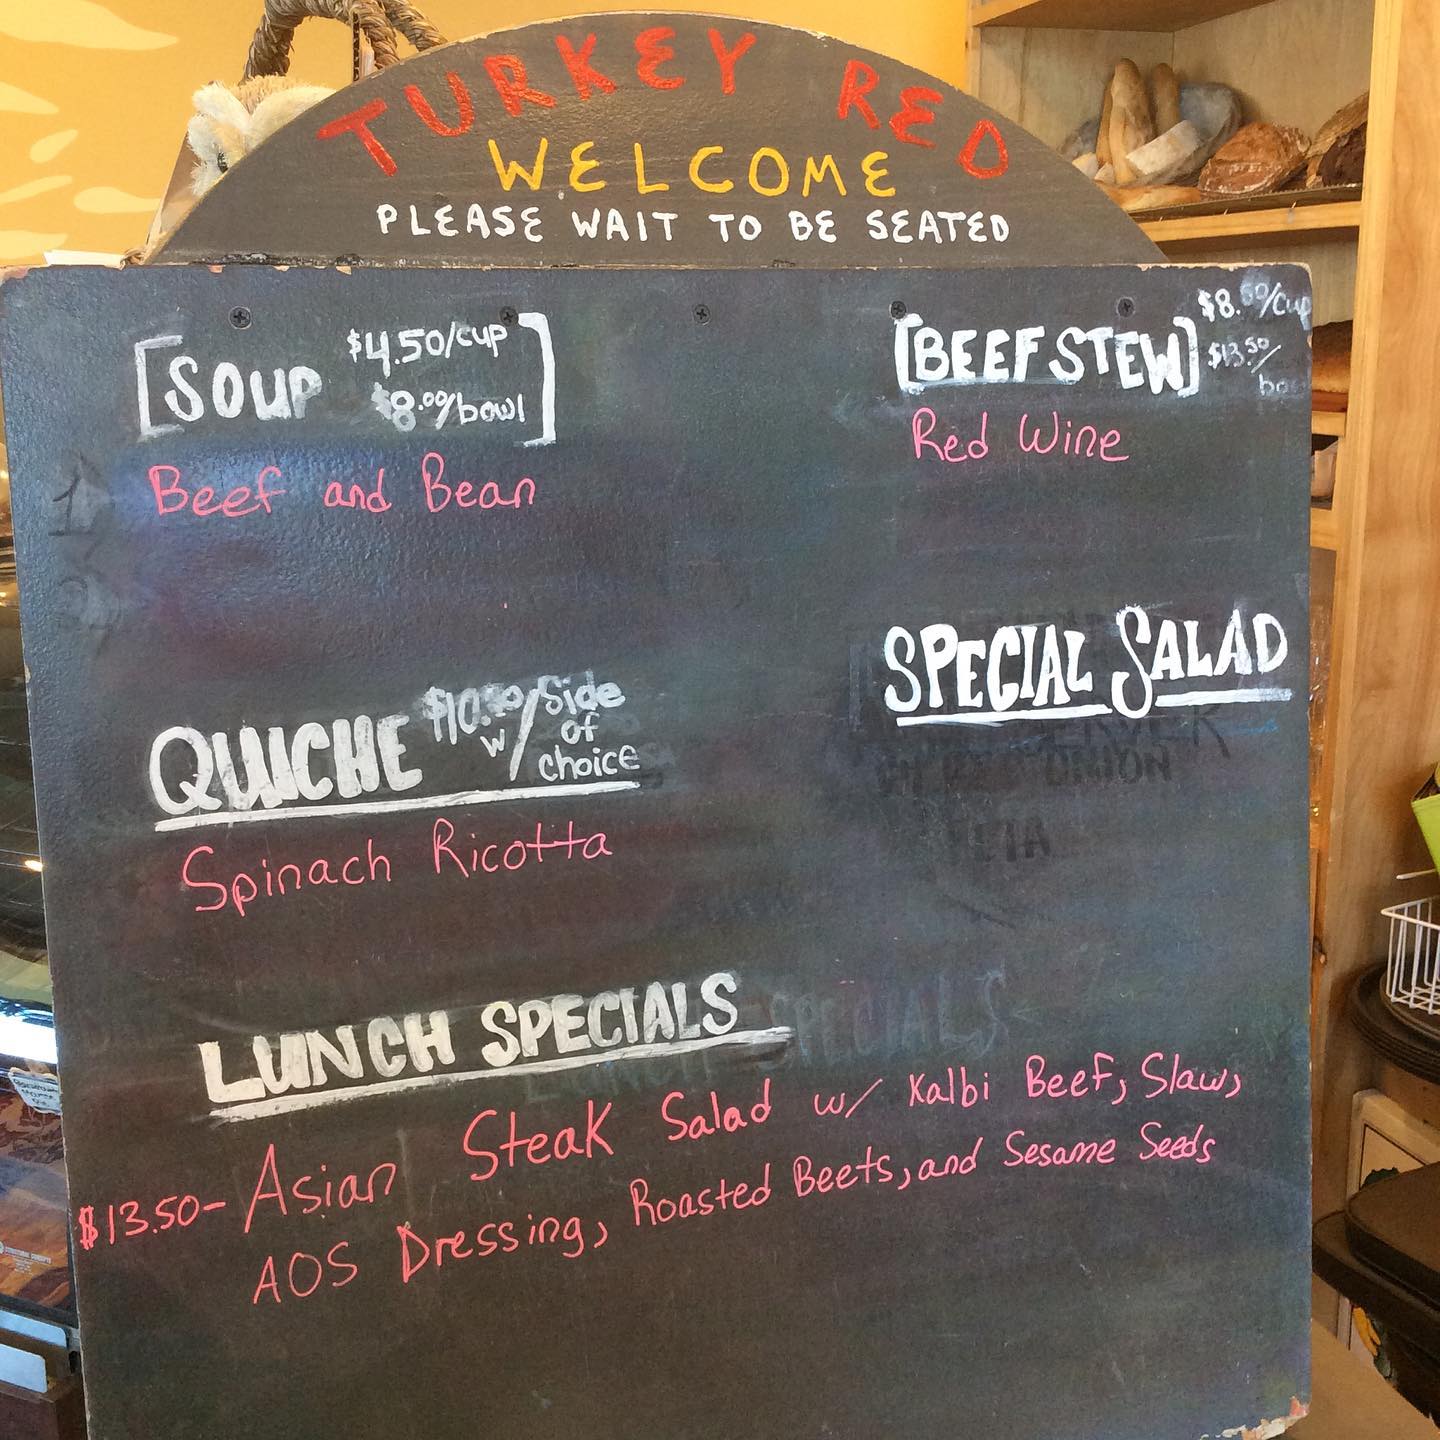 TURKEY RED
WELCOME
PLEASE WAIT TO BE SEATED
[SOUP $4.50/cup
$8.00/bowl]
Beef and Bean
[BEEF STEW] $8.50/cup
$13.50/
Red Wine
QUICHE $10.50 w/ Side
of
choice
Spinach Ricotta
SPECIAL SALAD
ONION
LUNCH SPECIALS
$13.50- Asian Steak Salad w/ Kalbi Beef, Slaw,
AOS Dressing, Roasted Beets, and Sesame Seeds